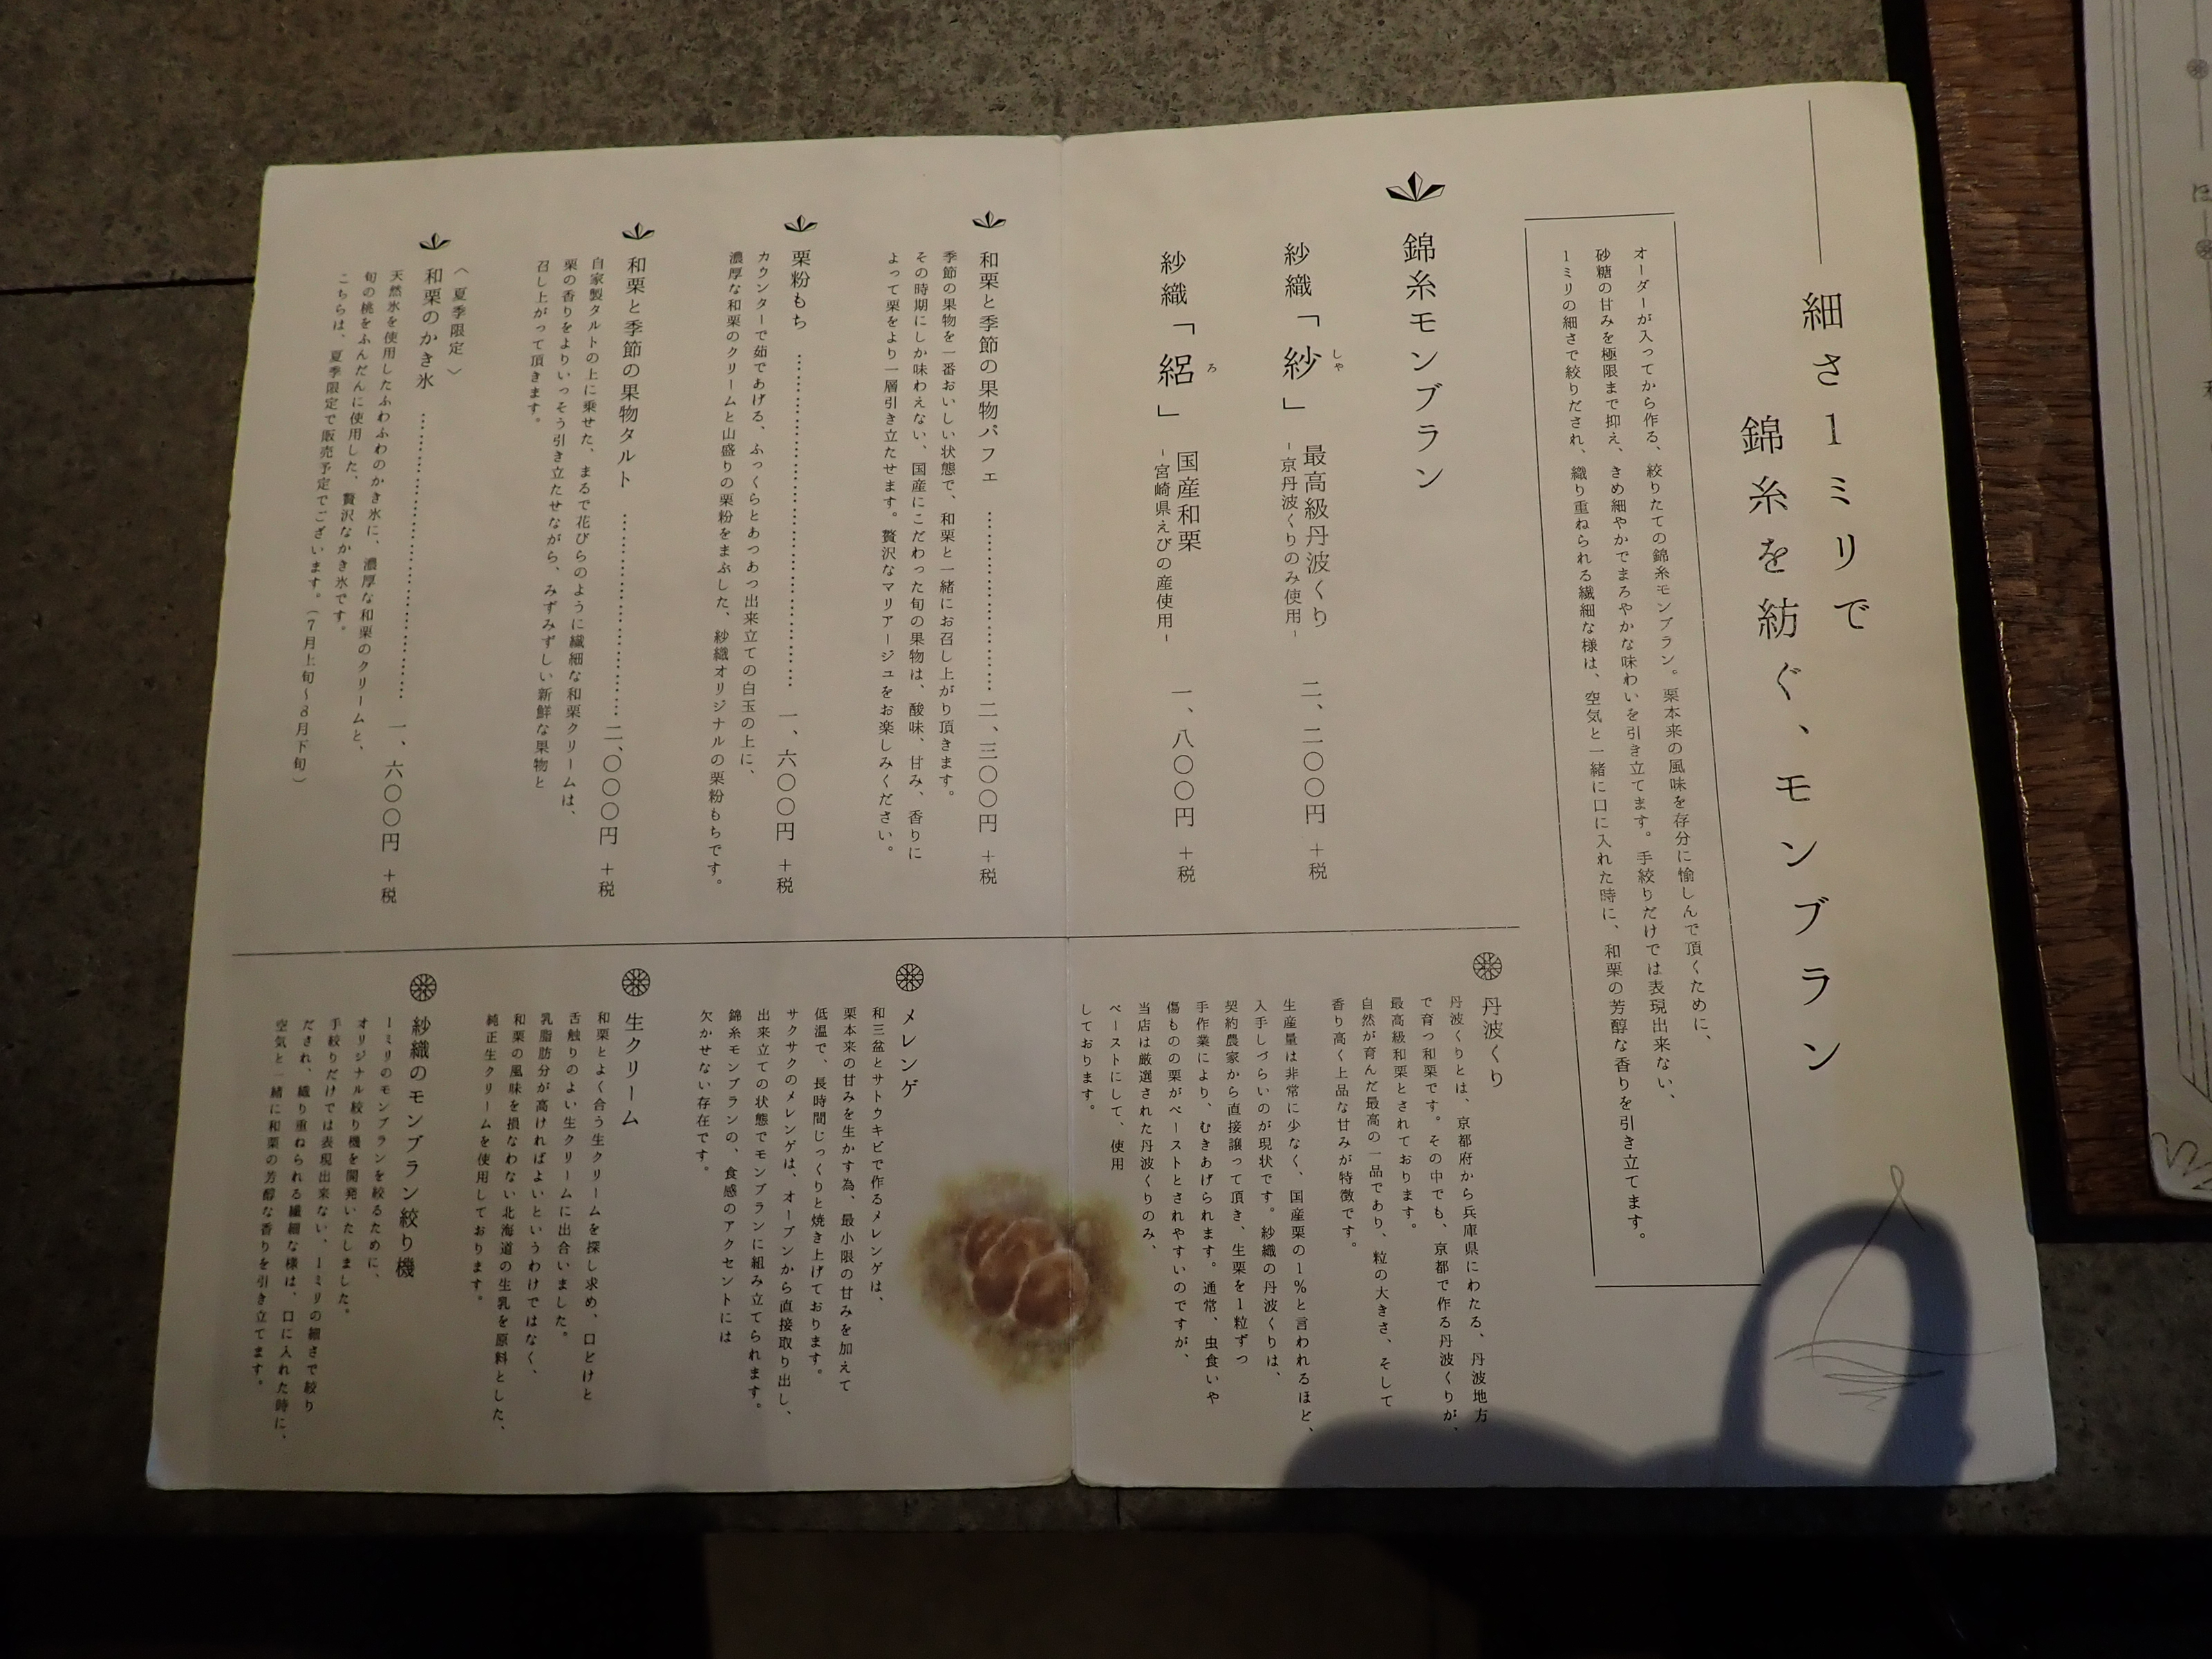 細さ1ミリで
錦糸を紡ぐ、モンブラン
オーダーが入ってから作る、絞りたての錦糸モンブラン。栗本来の風味を存分に愉しんで頂くために、
砂糖の甘みを極限まで抑え、きめ細やかでまろやかな味わいを引き立てます。手絞りだけでは表現出来ない、
1ミリの細さで絞りだされ、織り重ねられる繊細な様は、空気と一緒に口に入れた時に、和栗の芳醇な香りを引き立てます。
錦糸モンブラン
紗織「紗」 最高級丹波くり 二、二〇〇円 +税
しゃ
-京丹波くりのみ使用-
紗織「絽」 国産和栗 一、八〇〇円 +税
ろ
-宮崎県えびの産使用-
和栗と季節の果物パフェ ………… 二、三〇〇円 +税
季節の果物を一番おいしい状態で、和栗と一緒にお召し上がり頂きます。
その時期にしか味わえない、国産にこだわった旬の果物は、酸味、甘み、香りに
よって栗をより一層引き立たせます。贅沢なマリアージュをお楽しみください。
栗粉もち ………… 一、六〇〇円 +税
カウンターで茹であげる、ふっくらとあつあつ出来立ての白玉の上に、
濃厚な和栗のクリームと山盛りの栗粉をまぶした、紗織オリジナルの栗粉もちです。
和栗と季節の果物タルト ………… 二、〇〇〇円 +税
自家製タルトの上に乗せた、まるで花びらのように繊細な和栗クリームは、
栗の香りをよりいっそう引き立たせながら、みずみずしい新鮮な果物と
召し上がって頂きます。
〈夏季限定〉
和栗のかき氷 ………… 一、六〇〇円 +税
天然氷を使用したふわふわのかき氷に、濃厚な和栗のクリームと、
旬の桃をふんだんに使用した、贅沢なかき氷です。
こちらは、夏季限定で販売予定でございます。(7月上旬〜8月下旬)
丹波くり
丹波くりとは、京都府から兵庫県にわたる、丹波地方
で育つ和栗です。その中でも、京都で作る丹波くりが、
最高級和栗とされております。
自然が育んだ最高の一品であり、粒の大きさ、そして
香り高く上品な甘みが特徴です。
生産量は非常に少なく、国産栗の1%と言われるほど、
入手しづらいのが現状です。紗織の丹波くりは、
契約農家から直接譲って頂き、生栗を1粒ずつ
手作業により、むきあげられます。通常、虫食いや
傷ものの栗がペーストとされやすいのですが、
当店は厳選された丹波くりのみ、
ペーストにして、使用
しております。
メレンゲ
和三盆とサトウキビで作るメレンゲは、
栗本来の甘みを生かす為、最小限の甘みを加えて
低温で、長時間じっくりと焼き上げております。
サクサクのメレンゲは、オーブンから直接取り出し、
出来立ての状態でモンブランに組み立てられます。
錦糸モンブランの、食感のアクセントには
欠かせない存在です。
生クリーム
和栗とよく合う生クリームを探し求め、口どけと
舌触りのよい生クリームに出合いました。
乳脂肪分が高ければよいというわけではなく、
和栗の風味を損なわない北海道の生乳を原料とした、
純正生クリームを使用しております。
紗織のモンブラン絞り機
1ミリのモンブランを絞るために、
オリジナル絞り機を開発いたしました。
手絞りだけでは表現出来ない、1ミリの細さで絞り
だされ、織り重ねられる繊細な様は、口に入れた時に、
空気と一緒に和栗の芳醇な香りを引き立てます。